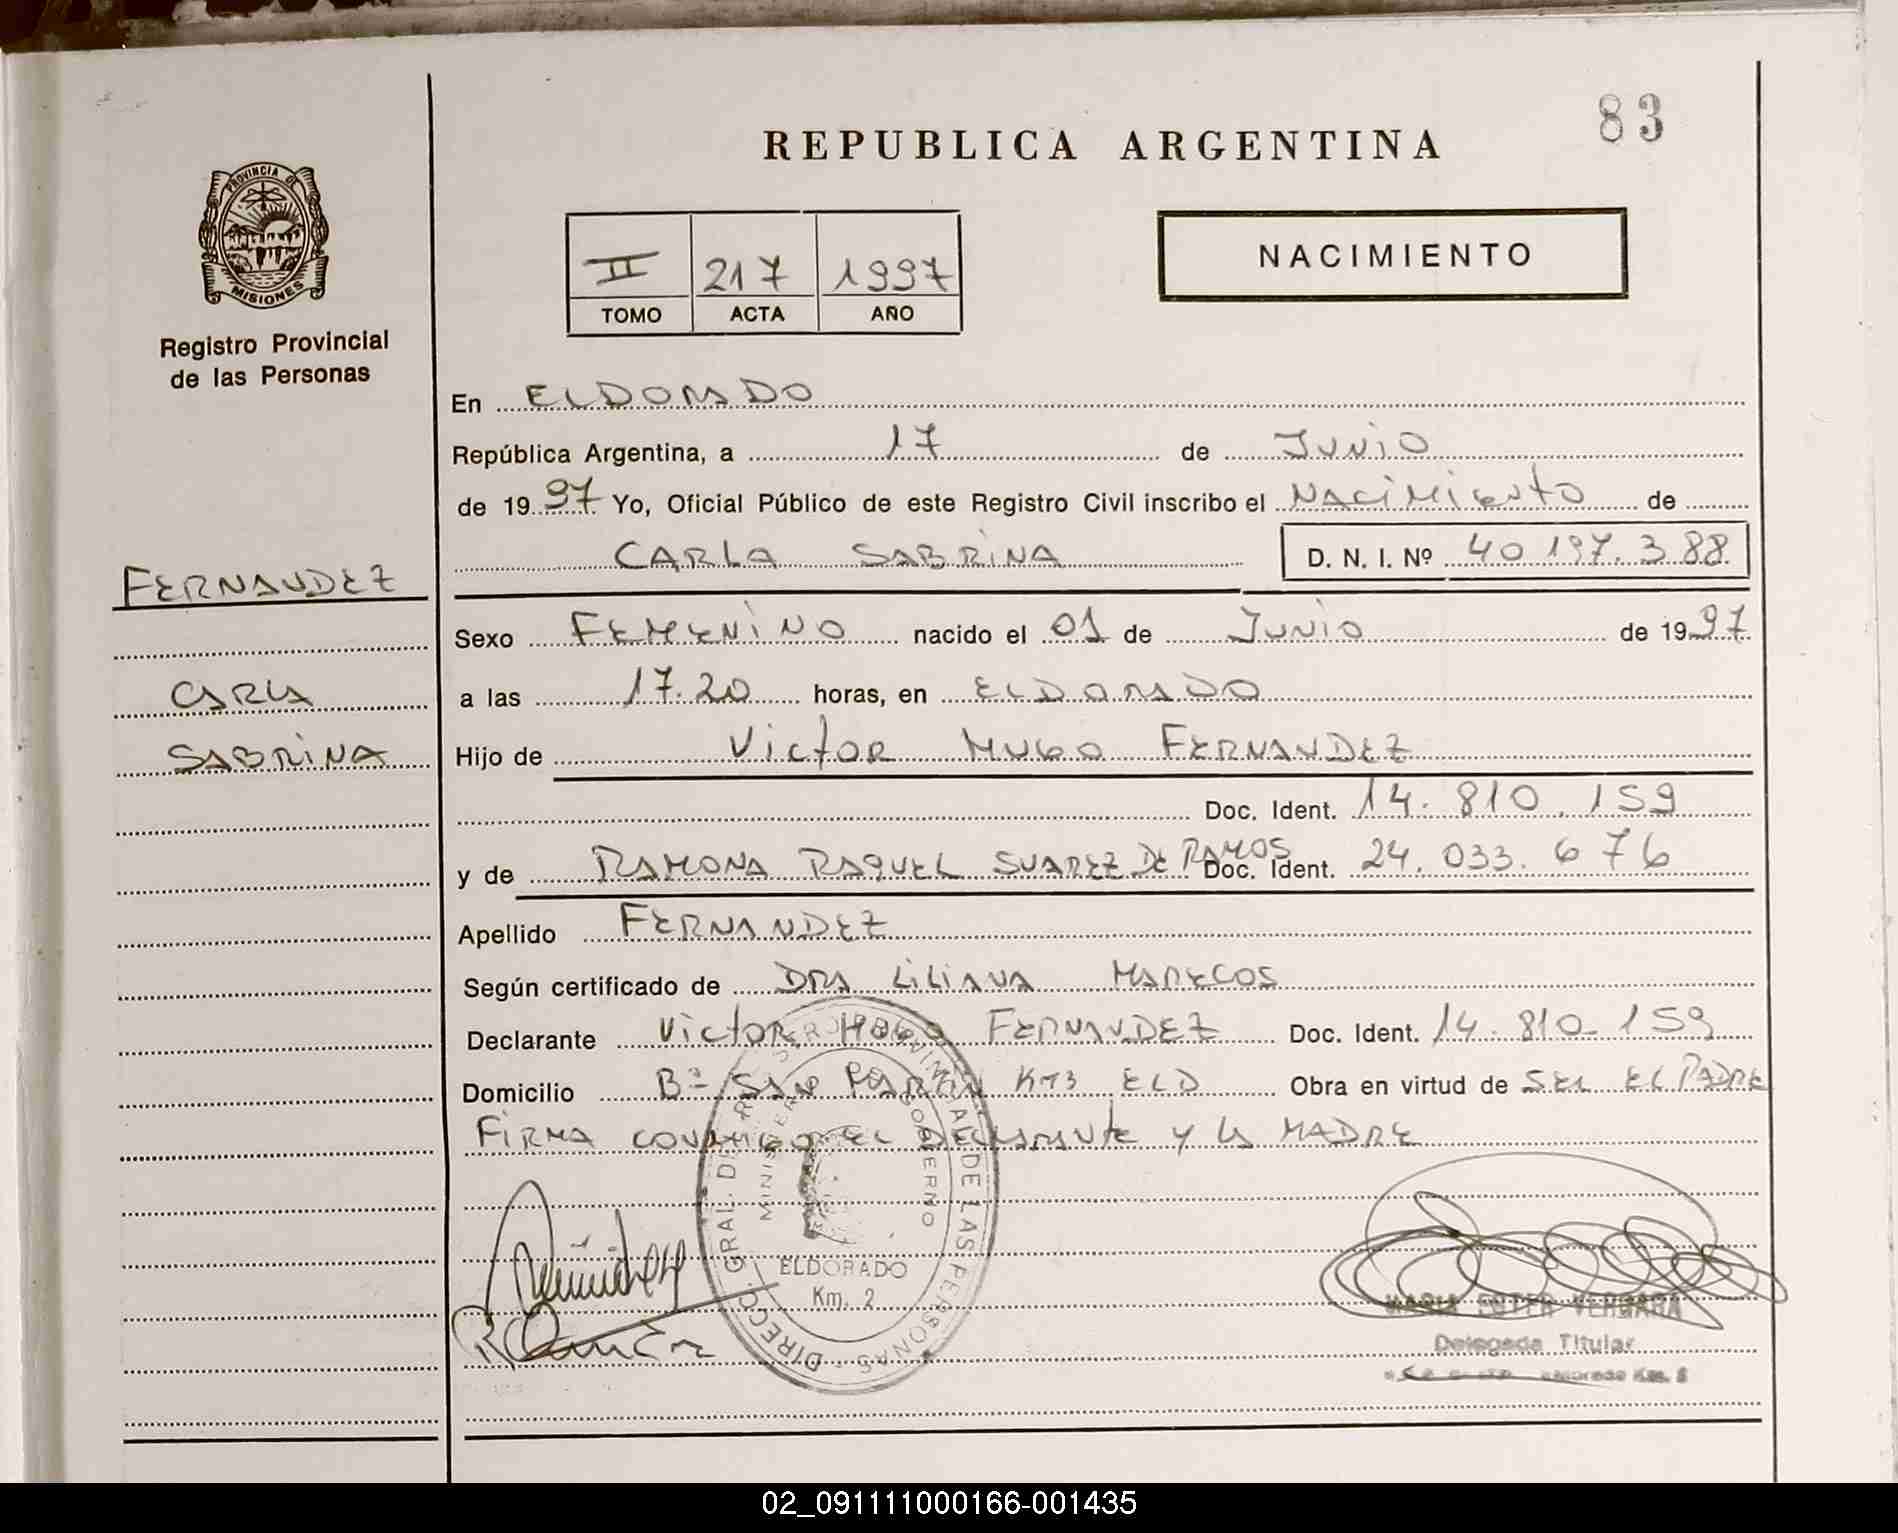 83
REPUBLICA ARGENTINA
PROVINCIA DE
MISIONES
Registro Provincial
de las Personas
II 217 1997
TOMO ACTA AÑO
NACIMIENTO
En ELDORADO
República Argentina, a 17 de JUNIO
de 1997 Yo, Oficial Público de este Registro Civil inscribo el NACIMIENTO de
CARLA SABRINA D. N. I. Nº 40 197.388
FERNANDEZ
CARLA
SABRINA
Sexo FEMENINO nacido el 01 de JUNIO de 1997
a las 17.20 horas, en ELDORADO
Hijo de VICTOR HUGO FERNANDEZ
Doc. Ident. 14.810.159
y de RAMONA RAQUEL SUAREZ DE RAMOS Doc. Ident. 24.033.676
Apellido FERNANDEZ
Según certificado de DRA LILIANA MARECOS
Declarante VICTOR HUGO FERNANDEZ Doc. Ident. 14.810.159
Domicilio Bº SAN MARTIN KM3 ELD Obra en virtud de SER EL PADRE
FIRMA CONMIGO EL DECLARANTE Y LA MADRE
DIRECC. GRAL. DEL REGISTRO PROVINCIAL DE LAS PERSONAS
MINISTERIO GOBIERNO
ELDORADO
Km. 2
MARIA ESTER VERGARA
Delegada Titular
02_091111000166-001435